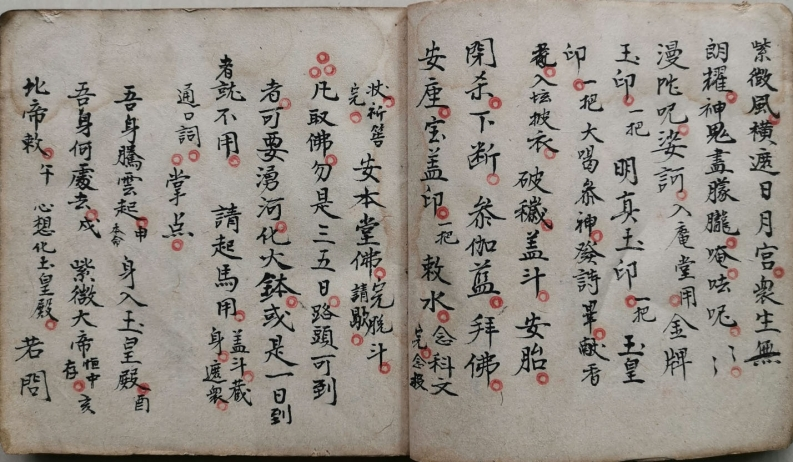 紫微風橫遮日月宮衆生無
朗耀神鬼盡朦朧唵呿呢〻
漫陀呢娑訶入庵堂用金牌
玉印一把明真玉印一把玉皇
印一把大喝叅神發詩畢献香
入坛披衣破穢盖斗安胎
閉杀下斷叅伽藍拜佛
安座宝盖印一把敕水念科文
完念投
祈筶完安本堂佛請歇完脱斗
凡取佛勿是三五日路頭可到
者可要湧河化火鉢或是一日到
者就不用請起馬用盖斗藏身遮衆
通口詞掌点
吾身騰雲起申身入玉皇殿酉
吾身何處去戌紫微大帝恒中存亥
北帝敕午心想化玉皇殿若問